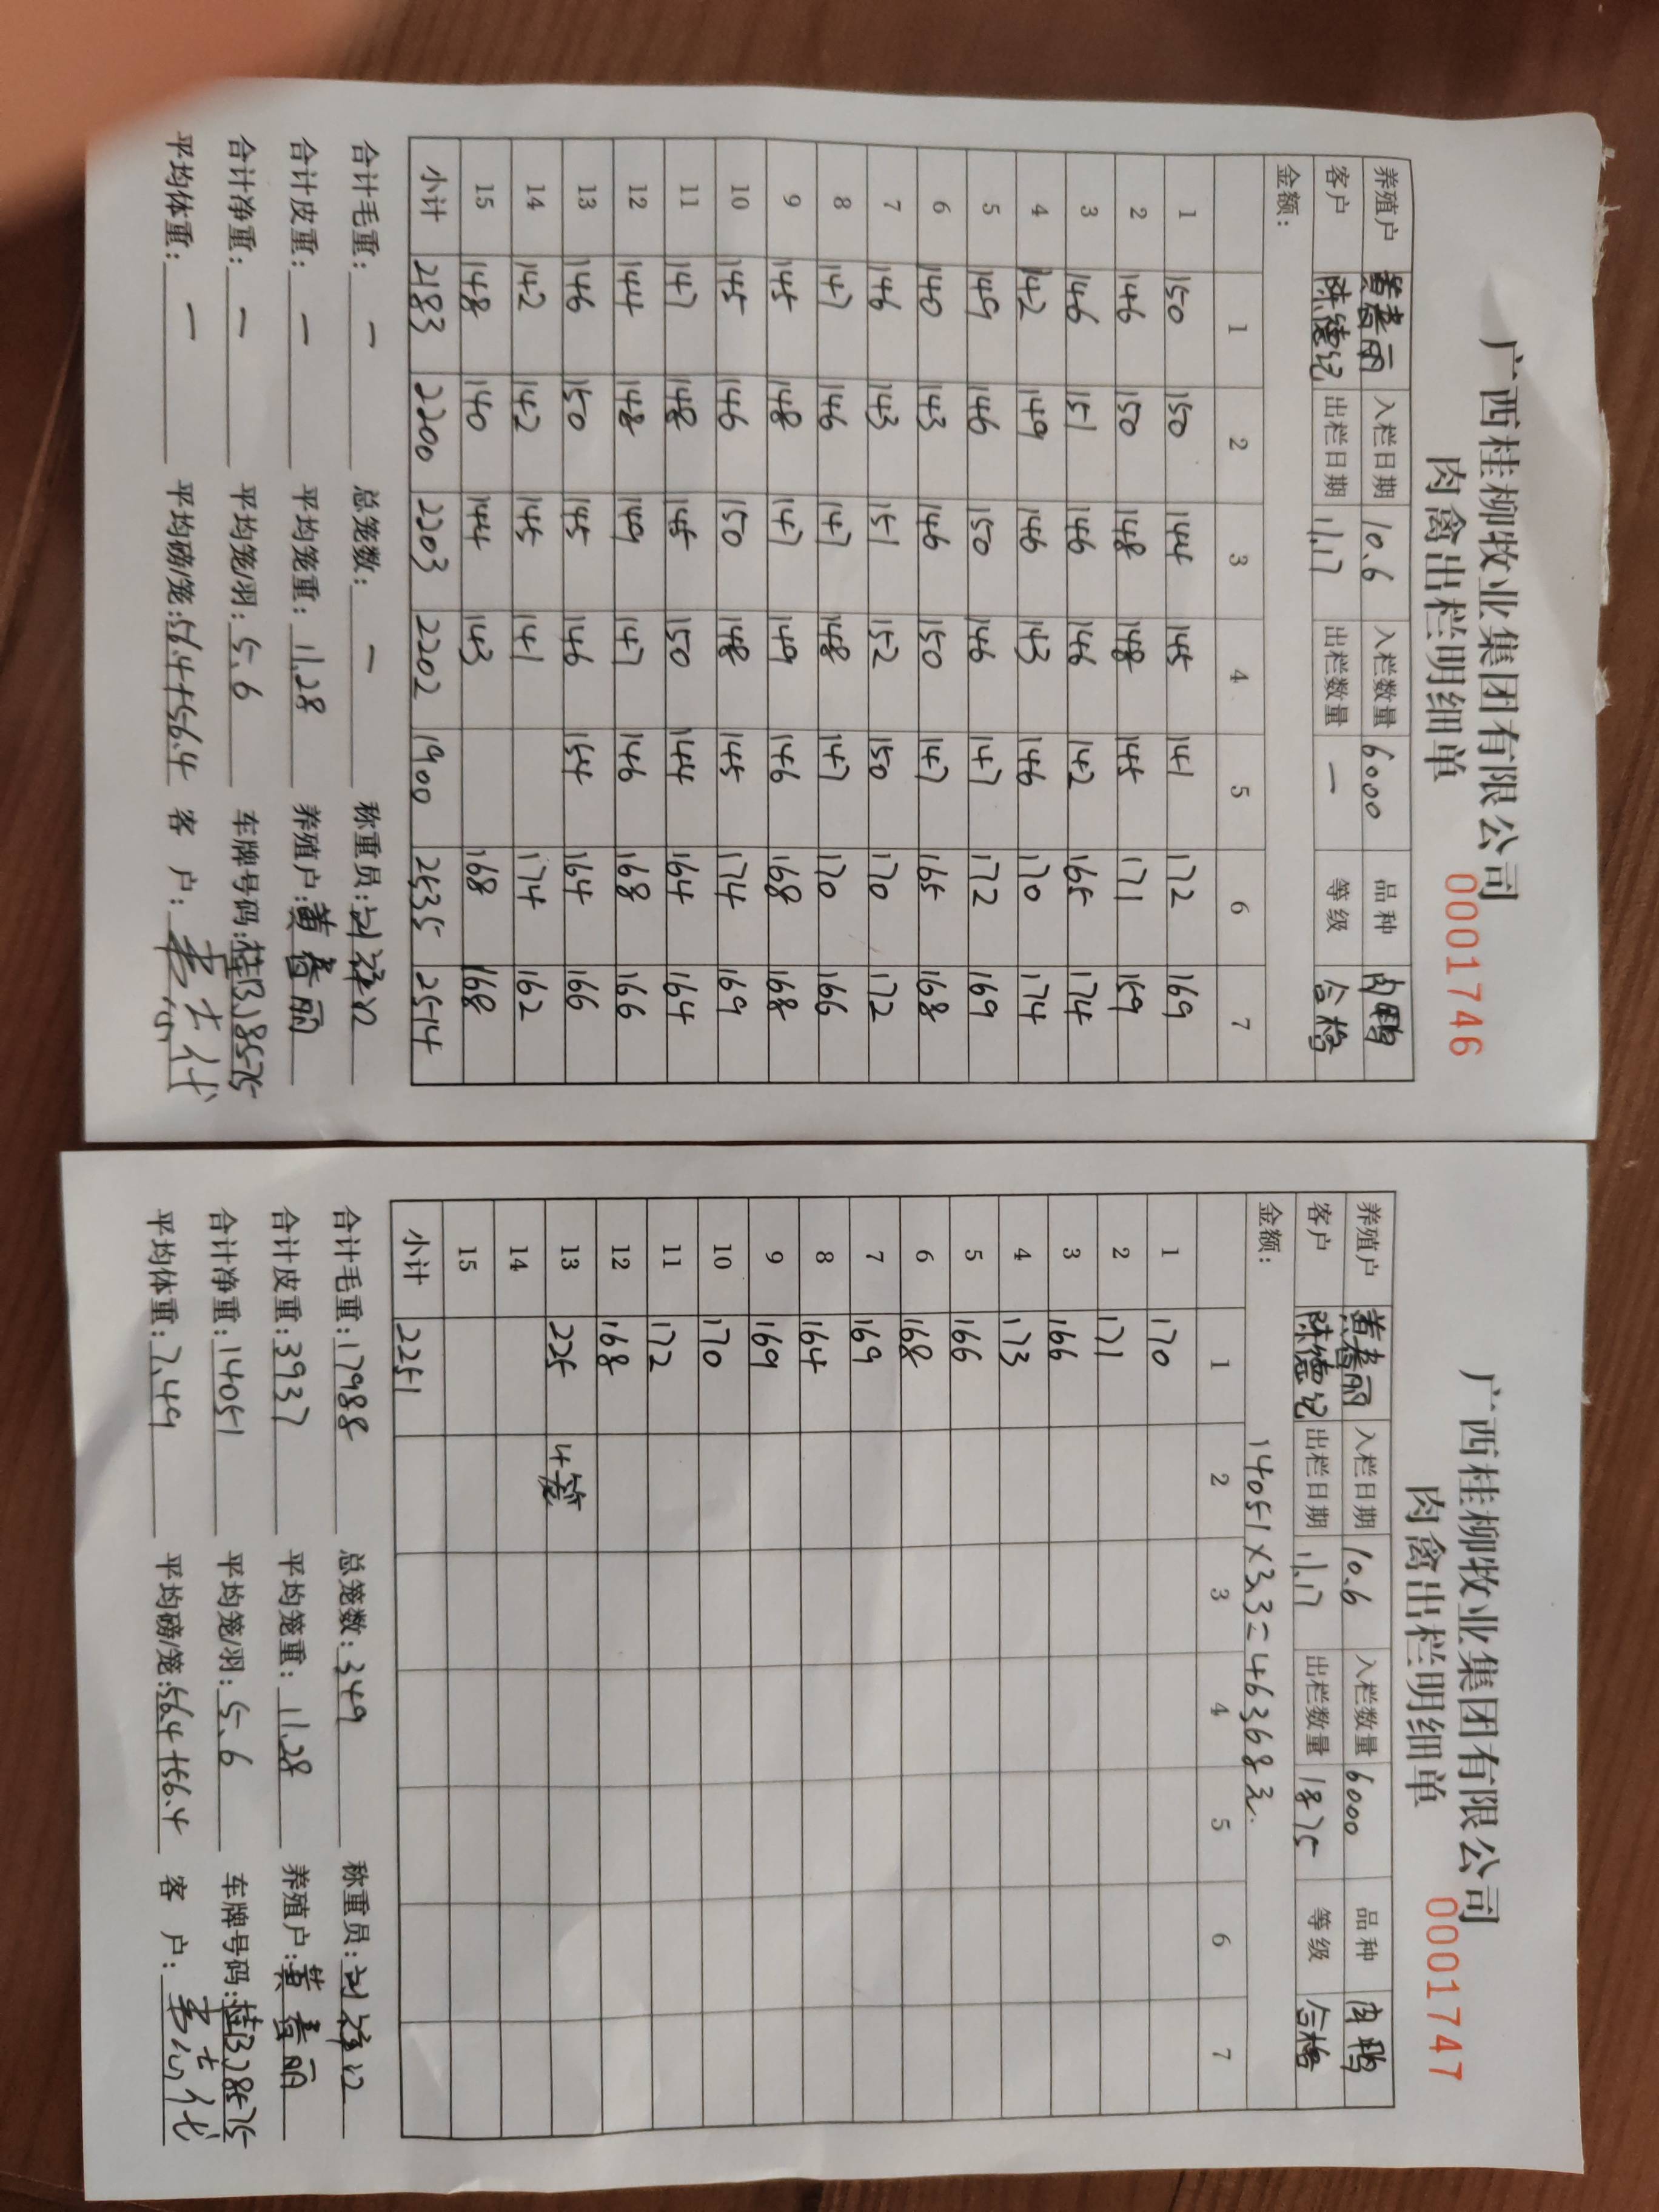 广西桂柳牧业集团有限公司
肉禽出栏明细单
0001746
养殖户 黄春丽 入栏日期 10.6 入栏数量 6000 品种 肉鸭
客户 陈德记 出栏日期 11.17 出栏数量 — 等级 合格
金额：
1 2 3 4 5 6 7
1 150 150 144 145 141 172 169
2 146 150 148 148 145 171 159
3 146 151 146 146 142 165 174
4 142 149 146 143 146 170 174
5 149 146 150 146 147 172 169
6 140 143 146 150 147 165 168
7 146 143 151 152 150 170 172
8 147 146 147 148 147 170 166
9 145 148 147 149 146 168 168
10 145 146 150 148 145 174 169
11 147 148 145 150 144 164 164
12 144 148 149 147 146 168 166
13 146 150 145 146 154 164 166
14 142 142 145 141 174 162
15 148 140 144 143 168 168
小计 2183 2200 2203 2202 1900 2535 2514
合计毛重：— 总笼数：— 称重员：
合计皮重：— 平均笼重：11.28 养殖户：黄春丽
合计净重：— 平均笼/羽：5.6 车牌号码：桂BJ8575
平均体重：— 平均磅/笼：56.4+56.4 客 户：
广西桂柳牧业集团有限公司
肉禽出栏明细单
0001747
养殖户 黄春丽 入栏日期 10.6 入栏数量 6000 品种 肉鸭
客户 陈德记 出栏日期 11.17 出栏数量 1875 等级 合格
金额： 14051×3.3=46368元.
1 2 3 4 5 6 7
1 170
2 171
3 166
4 173
5 166
6 168
7 169
8 164
9 169
10 170
11 172
12 168
13 225 4笼
14
15
小计 2251
合计毛重：17988 总笼数：349 称重员：
合计皮重：3937 平均笼重：11.28 养殖户：黄春丽
合计净重：14051 平均笼/羽：5.6 车牌号码：桂BJ8575
平均体重：7.49 平均磅/笼：56.4+56.4 客 户：